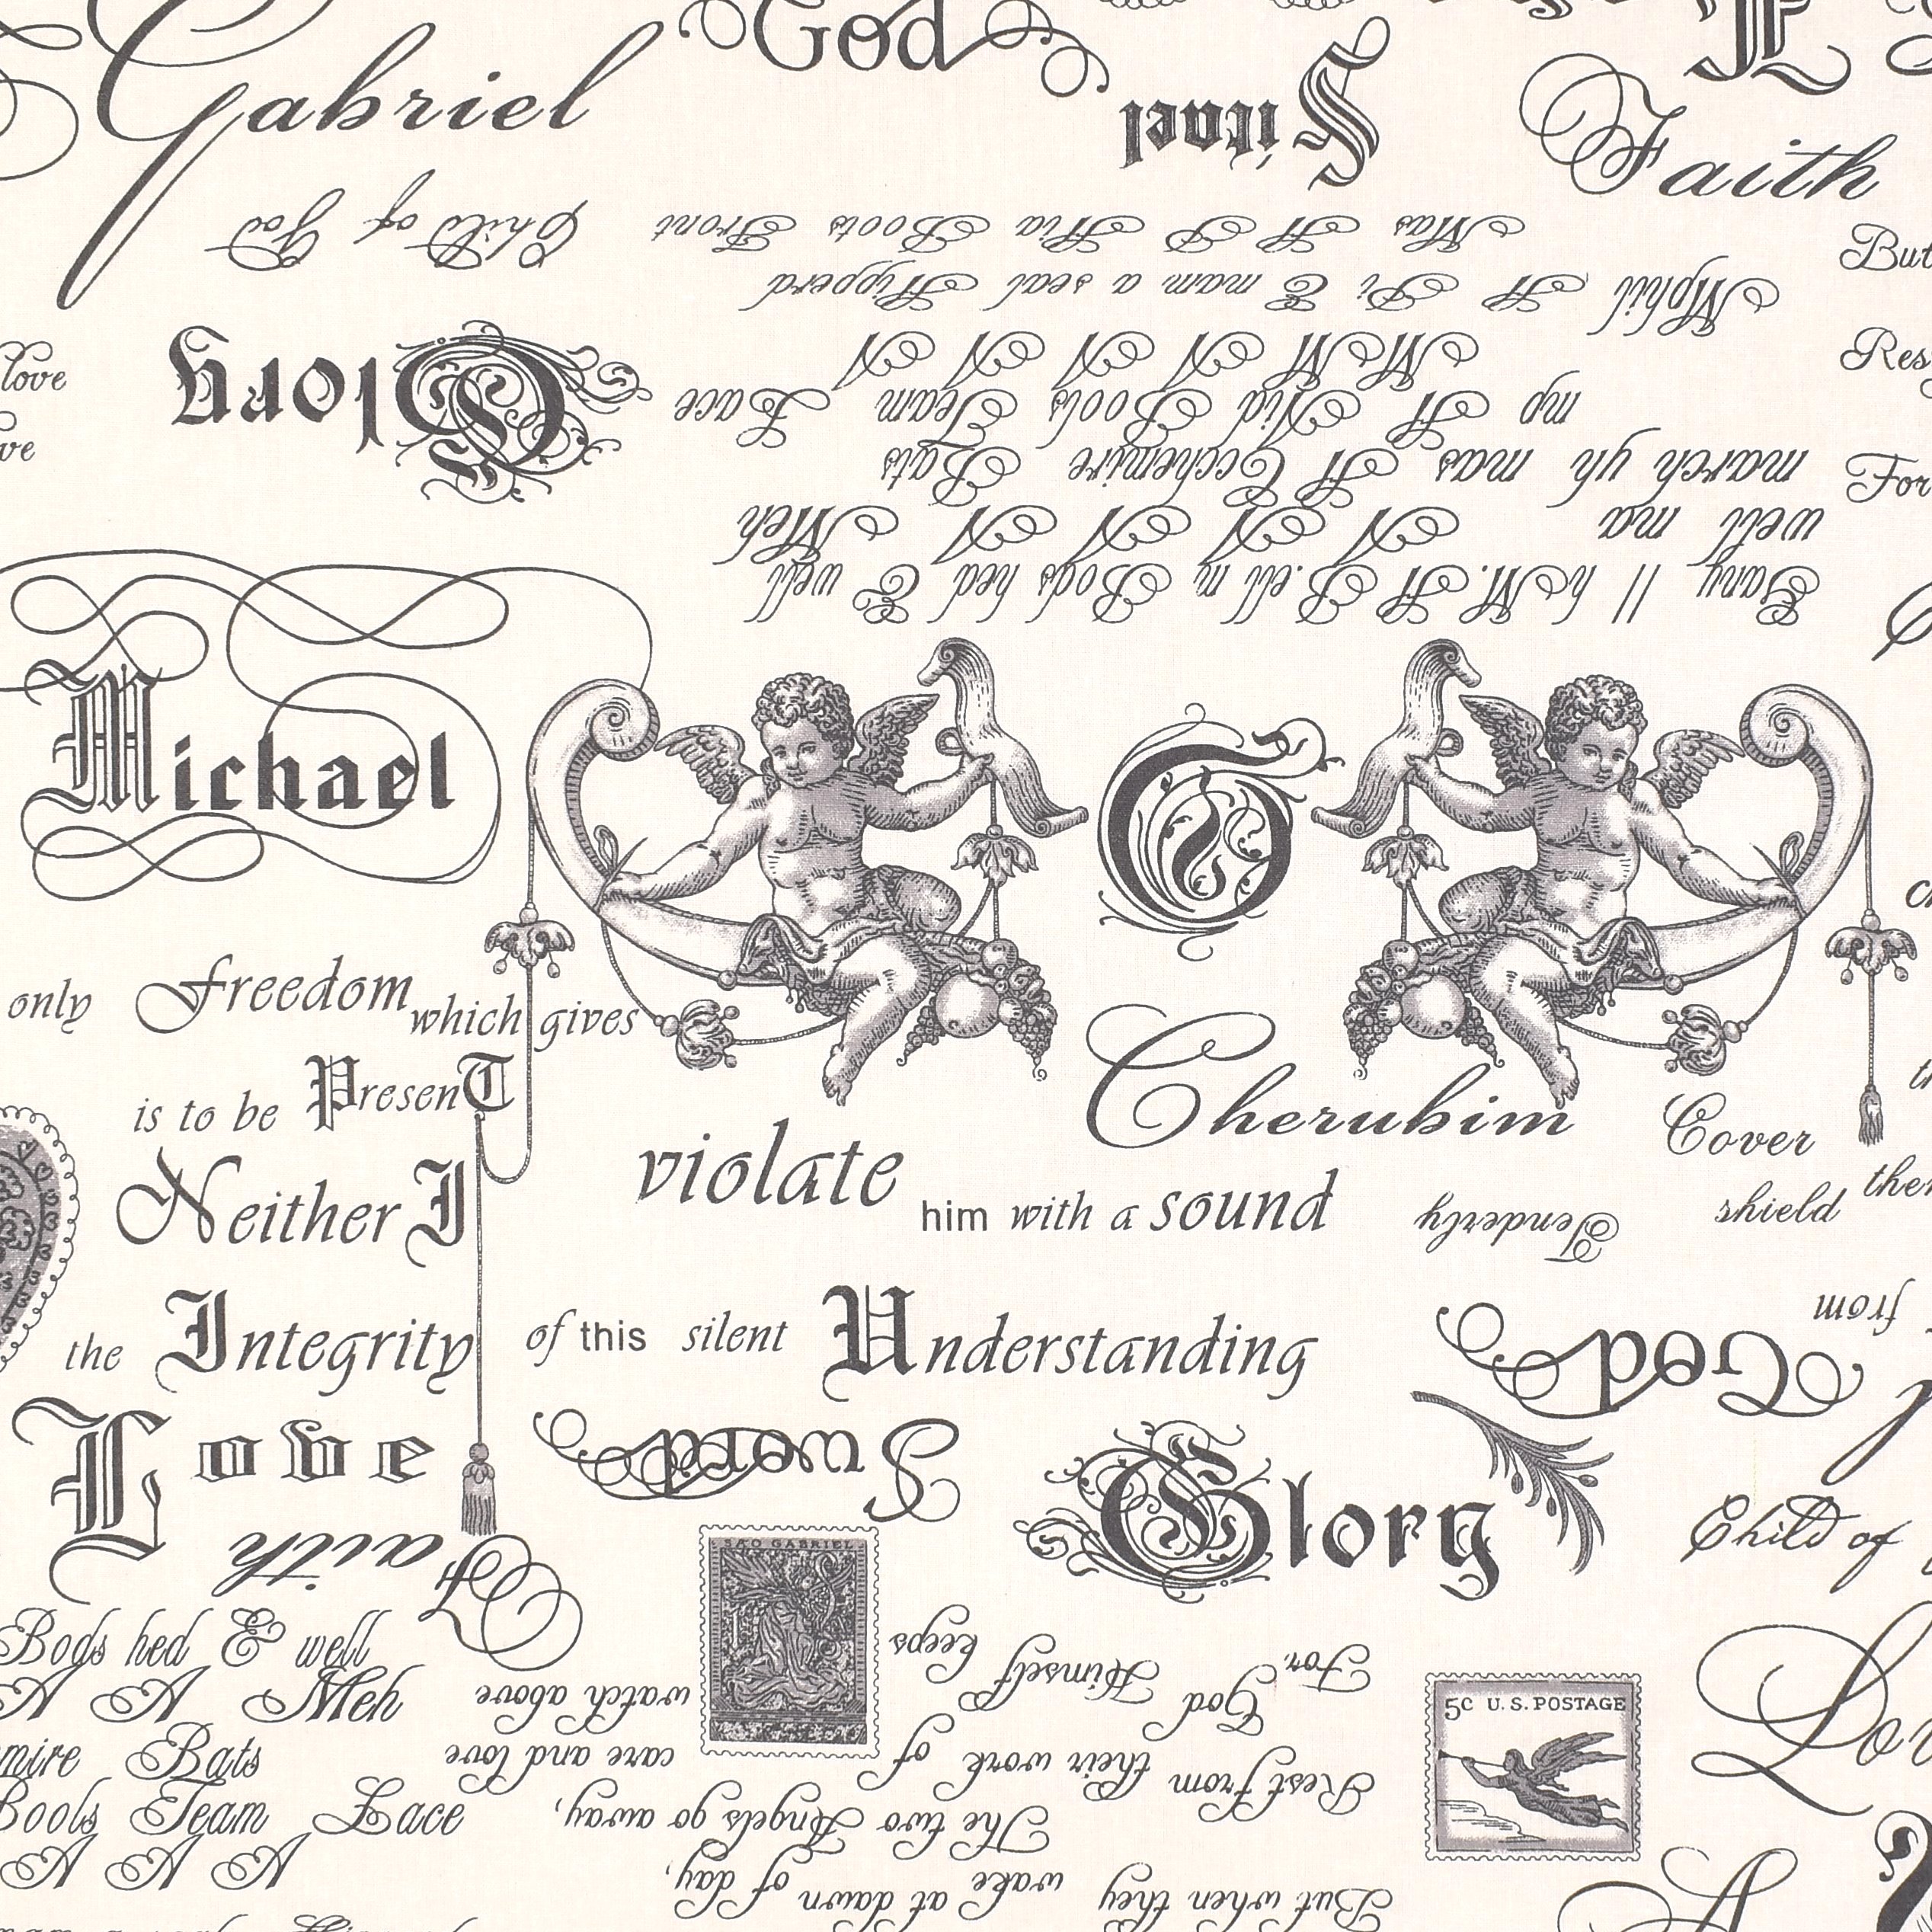 Gabriel
God
Sitael
Faith
Child of God
Mas A P Hia Boots Front
But
Mphil A Pi E mam a seal Hipperd
love
Glory
Res
my A Nia Bools Team Lace
ve
march yh mas A Ecchemire Bats
For
well ma A A A A Meh
Bany || h M. A B.ell m Bods hed & well
Michael
only Freedom which gives
is to be PresenT
Cherubim
Cover
violate
him with a sound
Neither I
Tenderly
shield
the Integrity of this silent Understanding
from
God
Love
Sword
Glory
Faith
SÃO GABRIEL
Child of
Bods hed & well
A A Meh
mire Bats
Bools Team Lace
A A A
For God Himself keeps watch above
Rest from their work of care and love
The two Angels go away,
But when they wake at dawn of day,
5c U.S. POSTAGE